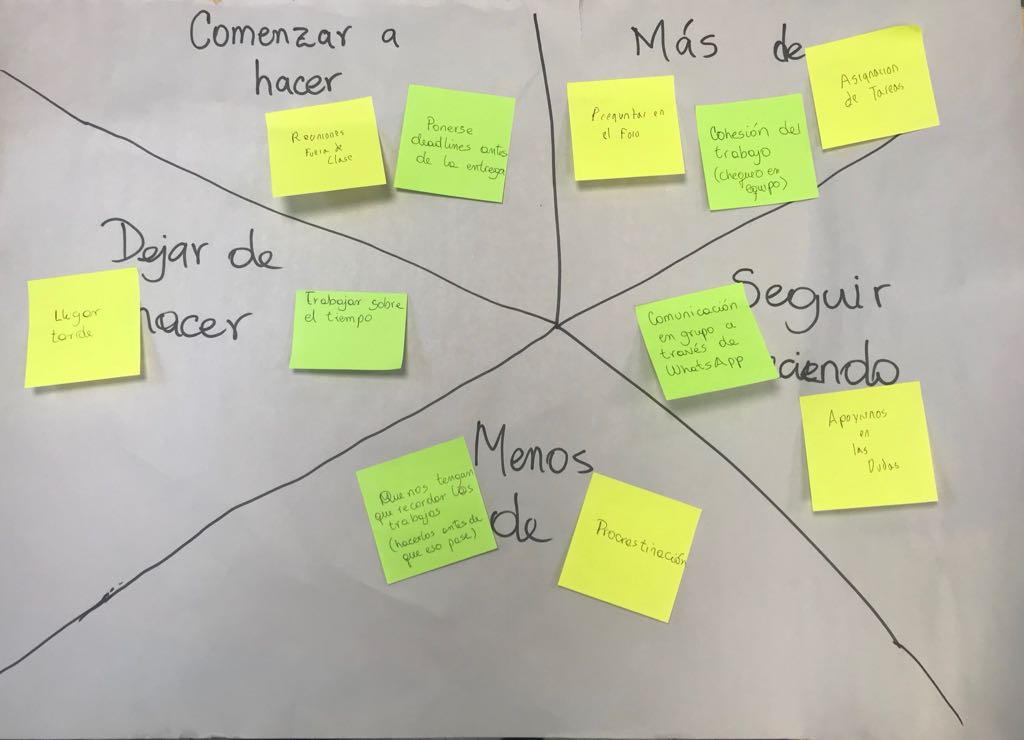 Comenzar a
hacer
Reuniones
Fuera de
Clase
Ponerse
deadlines antes
de la entrega
Más de
Preguntar en
el Foro
Cohesión del
trabajo
(chequeo en
equipo)
Asignacion
de Tareas
Dejar de
hacer
Llegar
tarde
Trabajar sobre
el tiempo
Seguir
ciendo
Comunicación
en grupo a
través de
WhatsApp
Apoyarnos
en
las
Dudas
Menos
de
Que nos tengan
que recordar los
trabajos
(hacerlos antes de
que eso pase)
Procrastinación